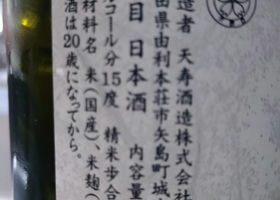 造者 天寿酒造株式会
田県由利本荘市矢島町城
目 日本酒 内容量
コール分15度 精米歩合
材料名 米(国産)、米麹(
酒は20歳になってから。